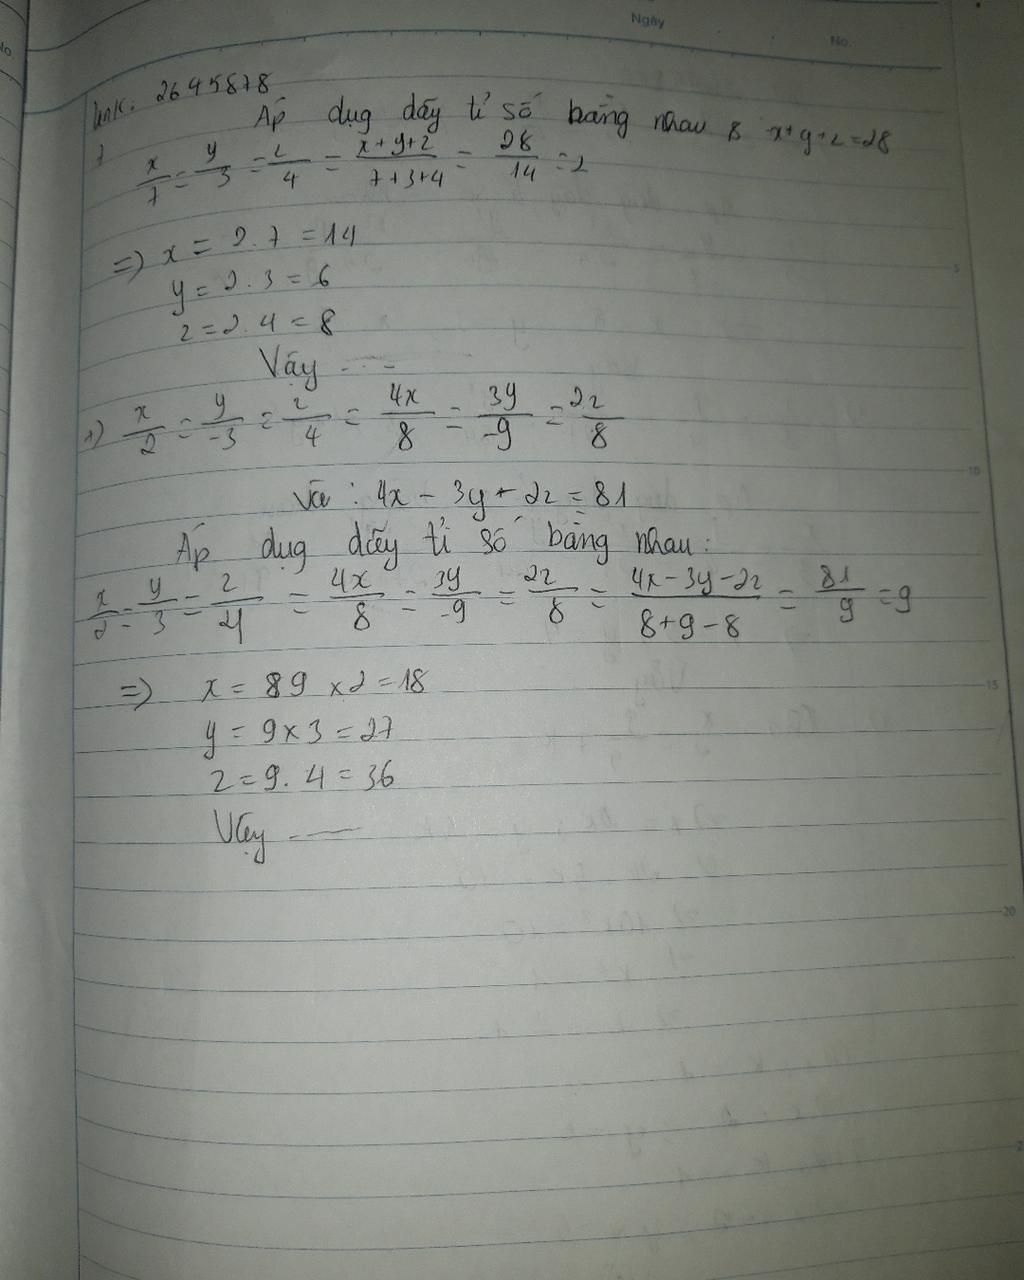 Ngày
No.
link: 2645878
Áp dụg dãy tỉ số bằng nhau & x+y+z=28
x/7 = y/3 = z/4 = x+y+z/7+3+4 = 28/14 = 2
=) x = 2.7 = 14
y = 2.3 = 6
z = 2.4 = 8
Vậy ----
x/2 = y/-3 = z/4 = 4x/8 = 3y/-9 = 2z/8
Và : 4x - 3y + 2z = 81
Áp dụg dãy tỉ số bằng nhau:
x/2 = y/3 = z/4 = 4x/8 = 3y/-9 = 2z/8 = 4x-3y-2z/8+9-8 = 81/9 = 9
=) x = 89 x2 = 18
y = 9x3 = 27
z = 9.4 = 36
Vậy ----